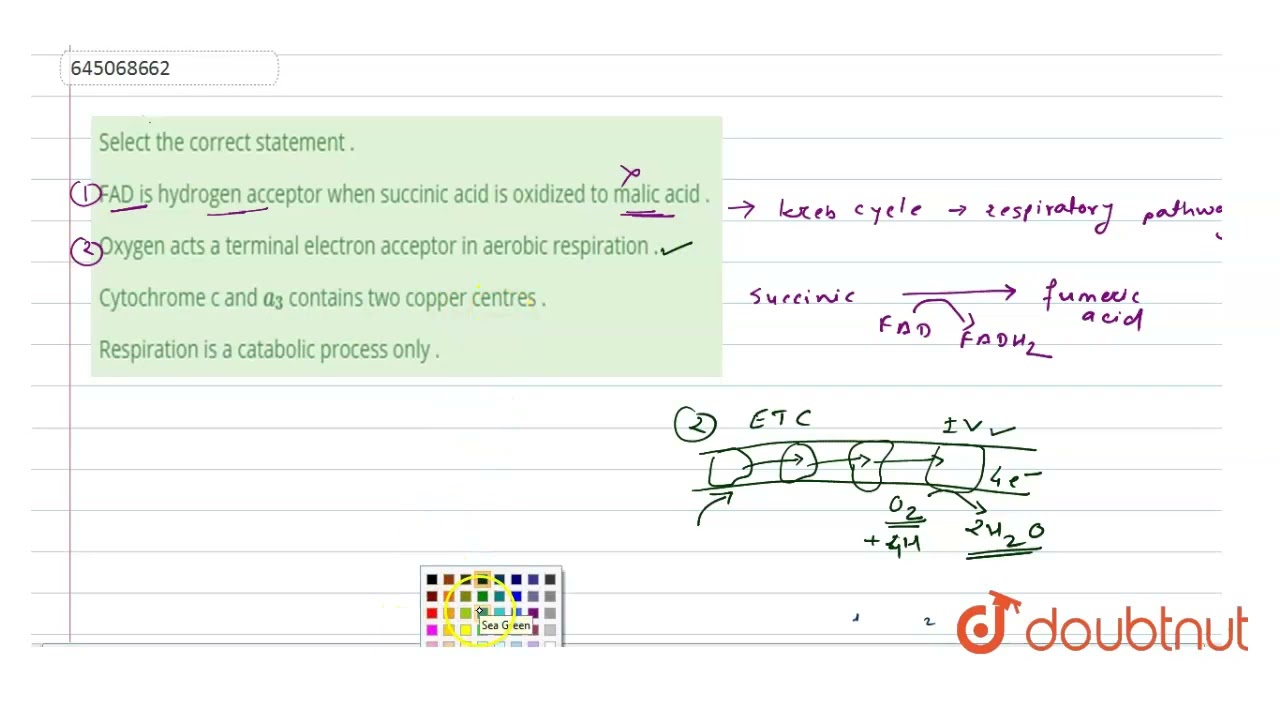 645068662
Select the correct statement .
① FAD is hydrogen acceptor when succinic acid is oxidized to malic acid .
② Oxygen acts a terminal electron acceptor in aerobic respiration . ✓
Cytochrome c and a₃ contains two copper centres .
Respiration is a catabolic process only .
→ kreb cycle → respiratory pathwa
Succinic → fumeric acid
FAD FADH₂
② ETC IV ✓
4e⁻
O₂ 2H₂O
+ 4H
Sea Green
1 2
doubtnut